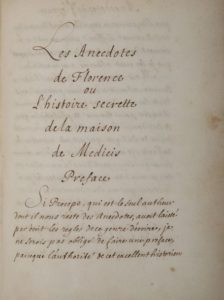 Les Anecdotes
de Florence
ou
L'histoire secrette
de la maison
de Medicis
Preface
Si Procope, qui est le seul autheur
dont il nous reste des Anecdotes, avoit laissé
par écrit les regles de ce genre d'écrire, je
ne serois pas obligé de faire une preface,
parceque l'authorité de cet excellent historien